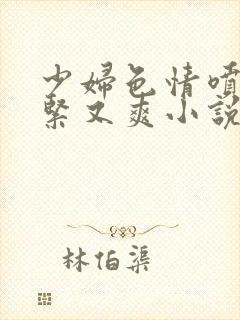 少婦色情噴
緊又爽小説
林伯渠